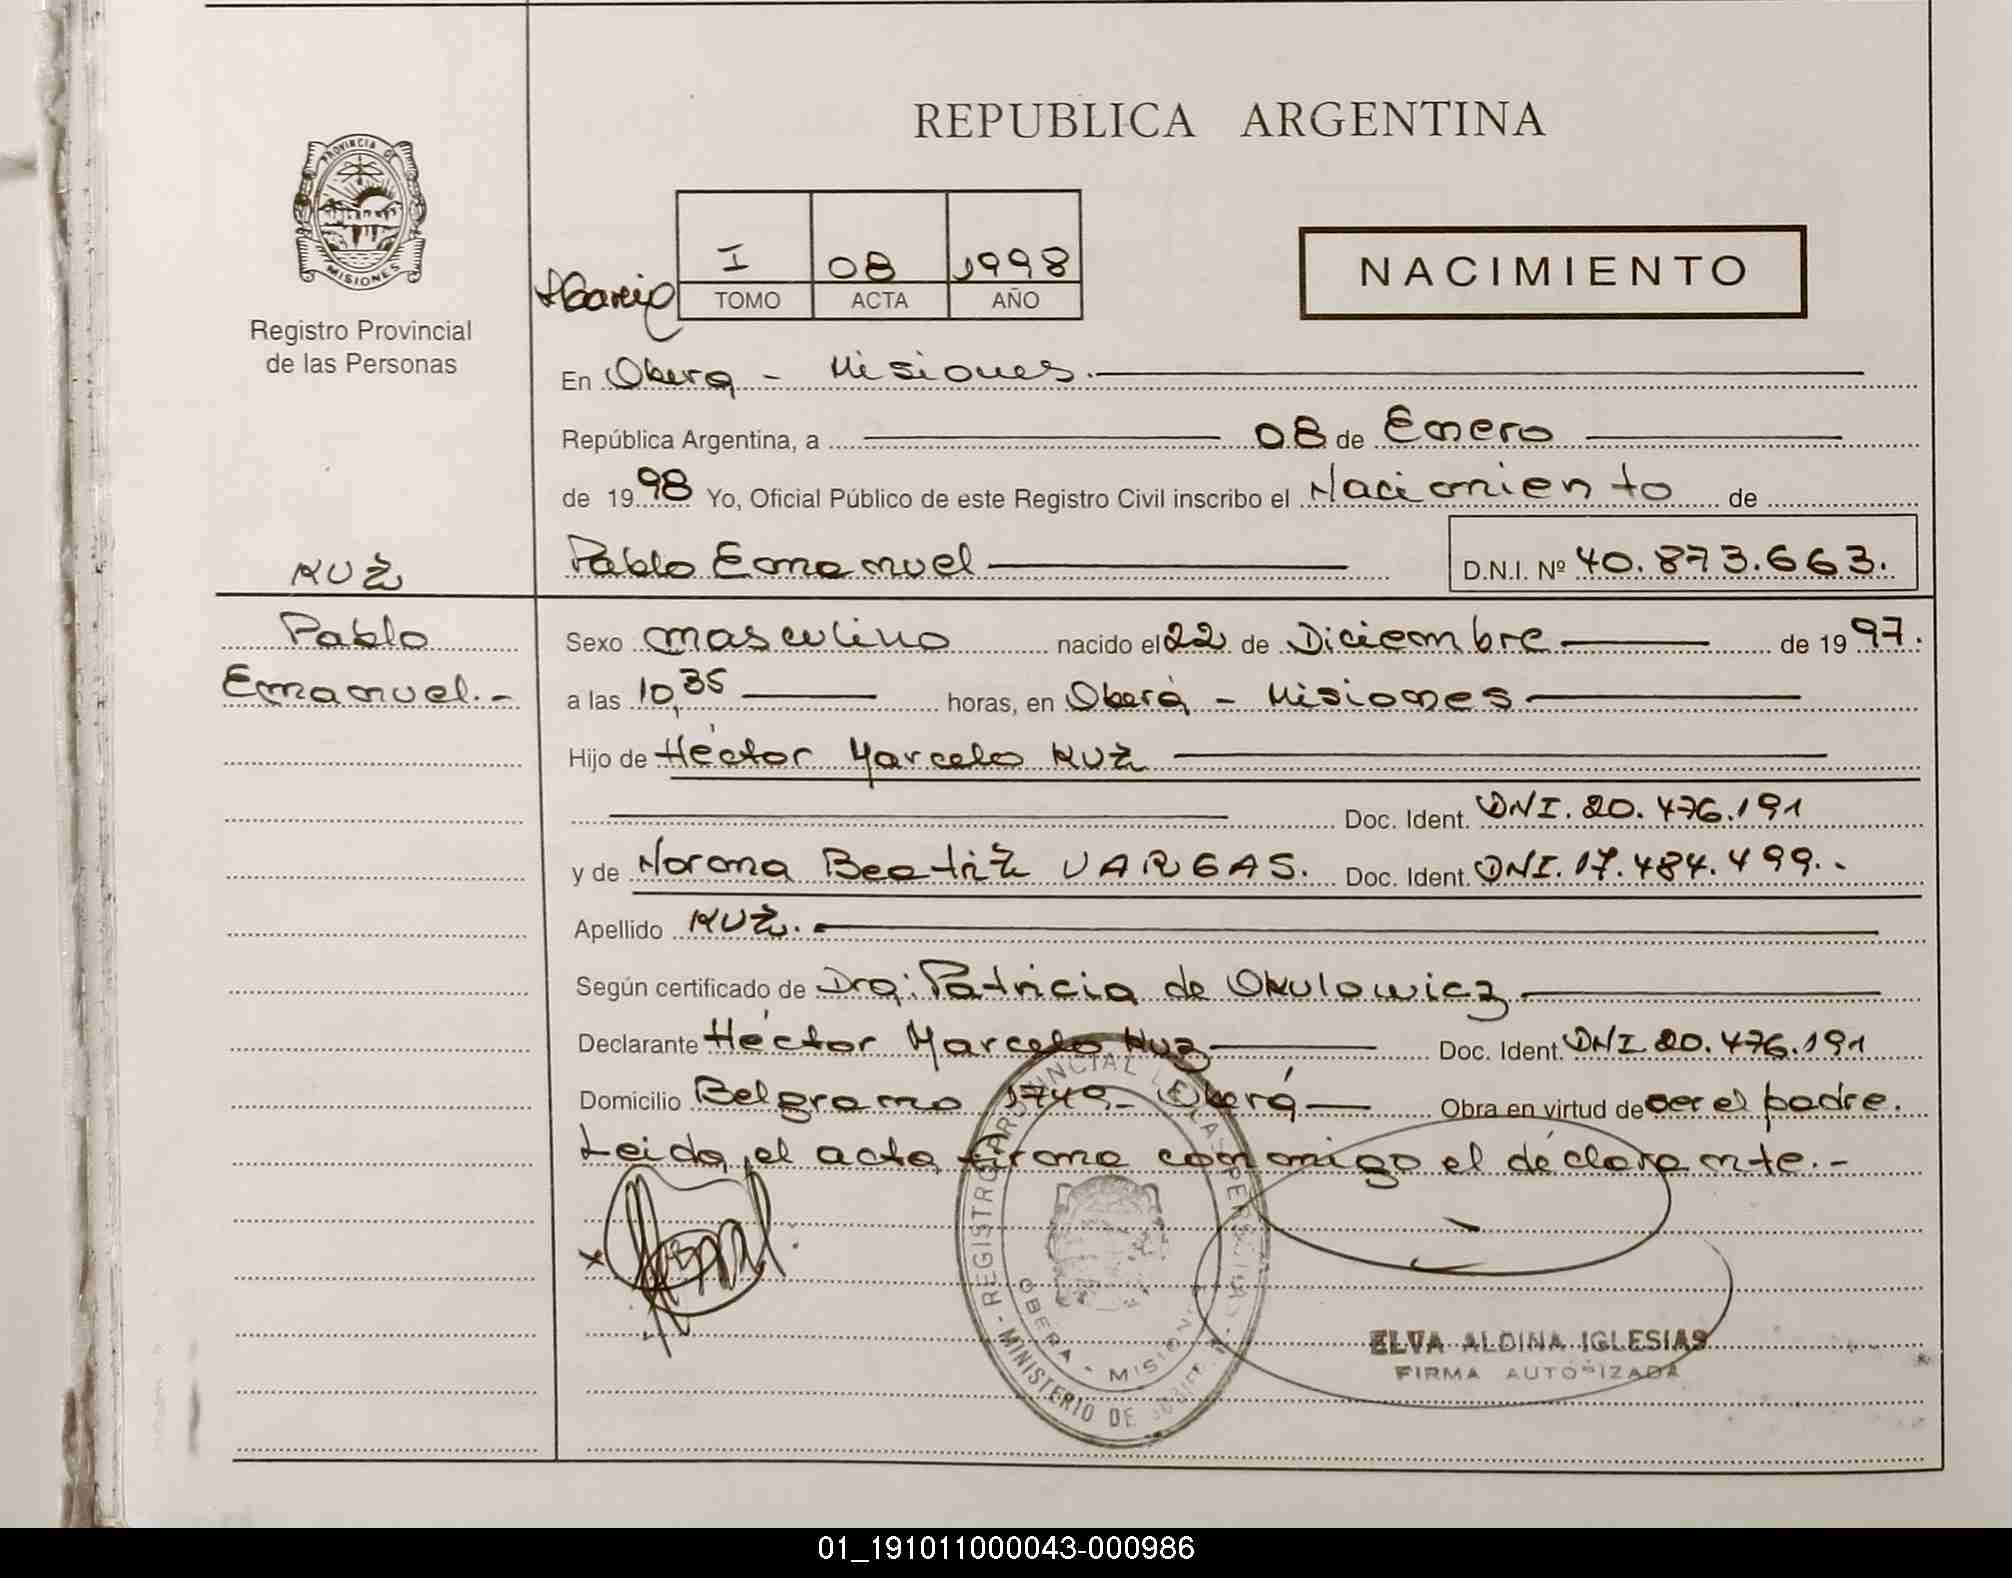 REPUBLICA ARGENTINA
PROVINCIA DE
MISIONES
Registro Provincial
de las Personas
I 08 1998
TOMO ACTA AÑO
NACIMIENTO
En Oberá - Misiones.
República Argentina, a 08 de Enero
de 1998 Yo, Oficial Público de este Registro Civil inscribo el Nacimiento de
Pablo Emanuel D.N.I. Nº 40.873.663.
KUZ
Pablo
Emanuel.-
Sexo masculino nacido el 22 de Diciembre de 1997.
a las 10,35 horas, en Oberá - Misiones
Hijo de Héctor Marcelo KUZ
Doc. Ident. DNI. 20.476.191
y de Norma Beatriz VARGAS. Doc. Ident. DNI. 17.484.499.-
Apellido KUZ.
Según certificado de Dra: Patricia de Okulowicz
Declarante Héctor Marcelo Kuz Doc. Ident. DNI 20.476.191
Domicilio Belgrano 1740 - Oberá Obra en virtud de ser el padre.
Leida el acta firma conmigo el declarante.-
REGISTRO PROVINCIAL DE LAS PERSONAS
OBERA - MISIONES
MINISTERIO DE
ELVA ALDINA IGLESIAS
FIRMA AUTORIZADA
01_191011000043-000986